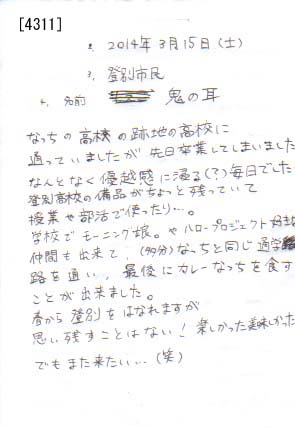 [4311]
2. 2014年 3月 15日 (土)
3. 登別市民
4. 名前 鬼の耳
なっちの高校の跡地の高校に
通っていましたが 先日卒業してしまいました
なんとなく優越感に浸る(?)毎日でした
登別高校の備品がちょっと残っていて
授業や部活で使ったり…。
学校でモーニング娘。やハロープロジェクト好きな
仲間も出来て、(多分)なっちと同じ通学
路を通い、最後にカレーなっちを食す
ことが出来ました。
春から登別をはなれますが
思い残すことはない! 楽しかった美味しかった
でもまた来たい…(笑)